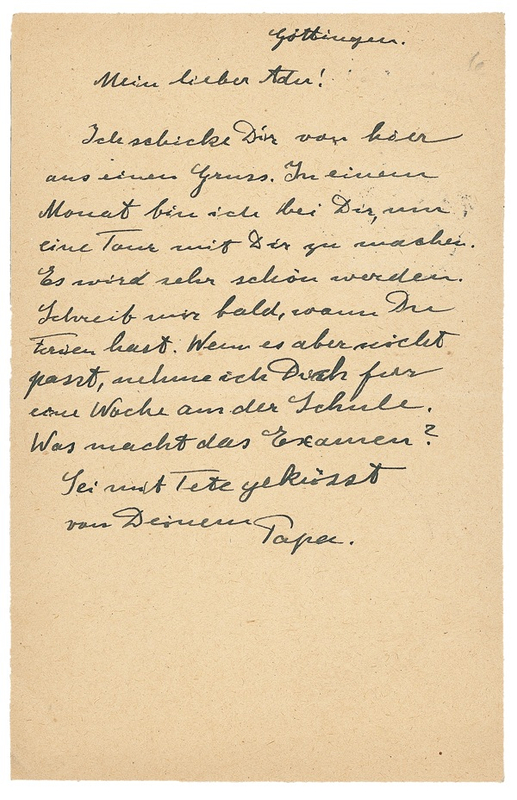 Göttingen.
Mein lieber Adu!
Ich schicke Dir von hier
aus einen Gruss. In einem
Monat bin ich bei Dir, um
eine Tour mit Dir zu machen.
Es wird sehr schön werden.
Schreib mir bald, wann Du
Ferien hast. Wenn es aber nicht
passt, nehme ich Dich für
eine Woche aus der Schule.
Was macht das Examen?
Sei mit Tete geküsst
von Deinem Papa.